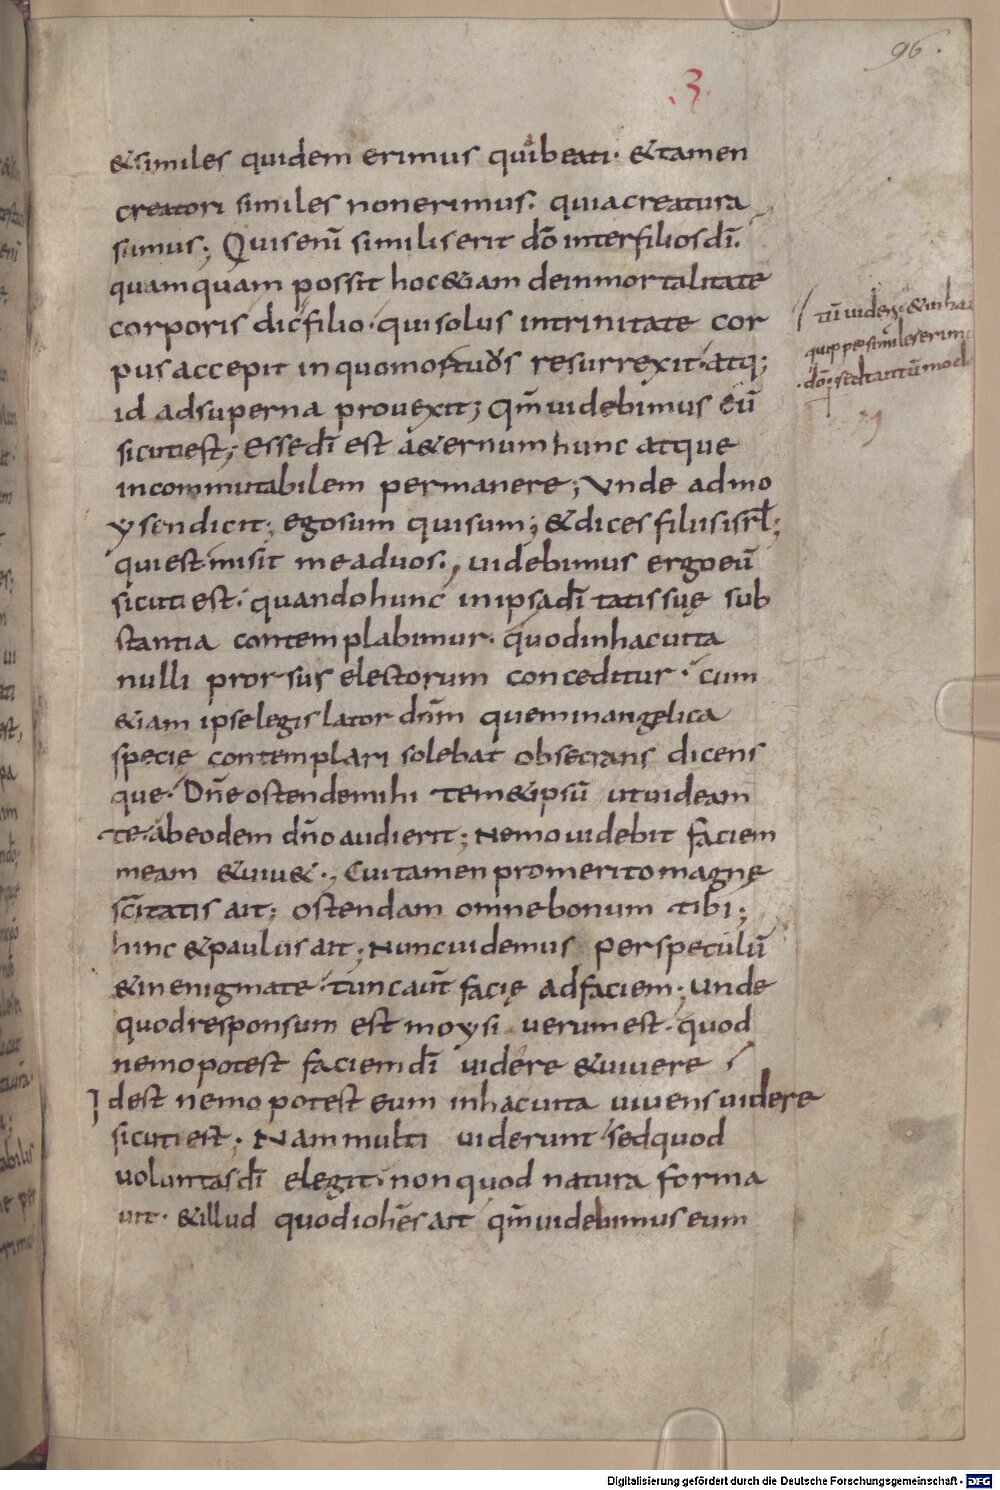 96.
3
&similes quidem erimus quibeati· &tamen
creatori similes nonerimus· quiacreatura
sumus; Quisenī similiserit dō interfiliosdī·
quamquam possit hoc&iam deinmortalitate
corporis dicifilio· quisolus intrinitate cor
pusaccepit inquomortuus resurrexit· atq;
id adsuperna prouexit; Qm̄uidebimus eū
sicutiest; Essedī est a&ernumhunc atque
incommutabilem permanere; Unde admo
ysendicit; egosum quisum; &dices filiisisrł;
quiest· misit meaduos·, uidebimus ergoeū
sicutiest· quandohunc inipsadītatissuę sub
stantia contemplabimur· quodinhacuita
nulli prorsus electorum conceditur· cum
&iam ipselegislator dnm̄ queminangelica
specię contemplari solebat obsecrans dicens
que· Dn̄eostendemihi tem&ipsū utuideam
te· abeodem dn̄oaudierit; Nemouidebit faciem
meam &uiu&·, Cuitamenpromeritomagnę
sc̄itatis ait; ostendam omnebonum tibi;
hinc &paulusait; Nuncuidemus perspeculū
&inenigmate· tuncaut̄ facię adfaciem; unde
quodresponsum estmoysi uerumest· quod
nemopotest faciemdī uidere &uiuere
Idest nemopotesteum inhacuita uiuensuidere
sicutiest· Nammulti uiderunt· sedquod
uoluntasdī elegit· nonquod natura forma
uit· &illud quodioh̄esait qm̄uidebimuseum
tū uidens· &inha
quippesimileserim
dō· sedtantūmodo
Digitalisierung gefördert durch die Deutsche Forschungsgemeinschaft · DFG